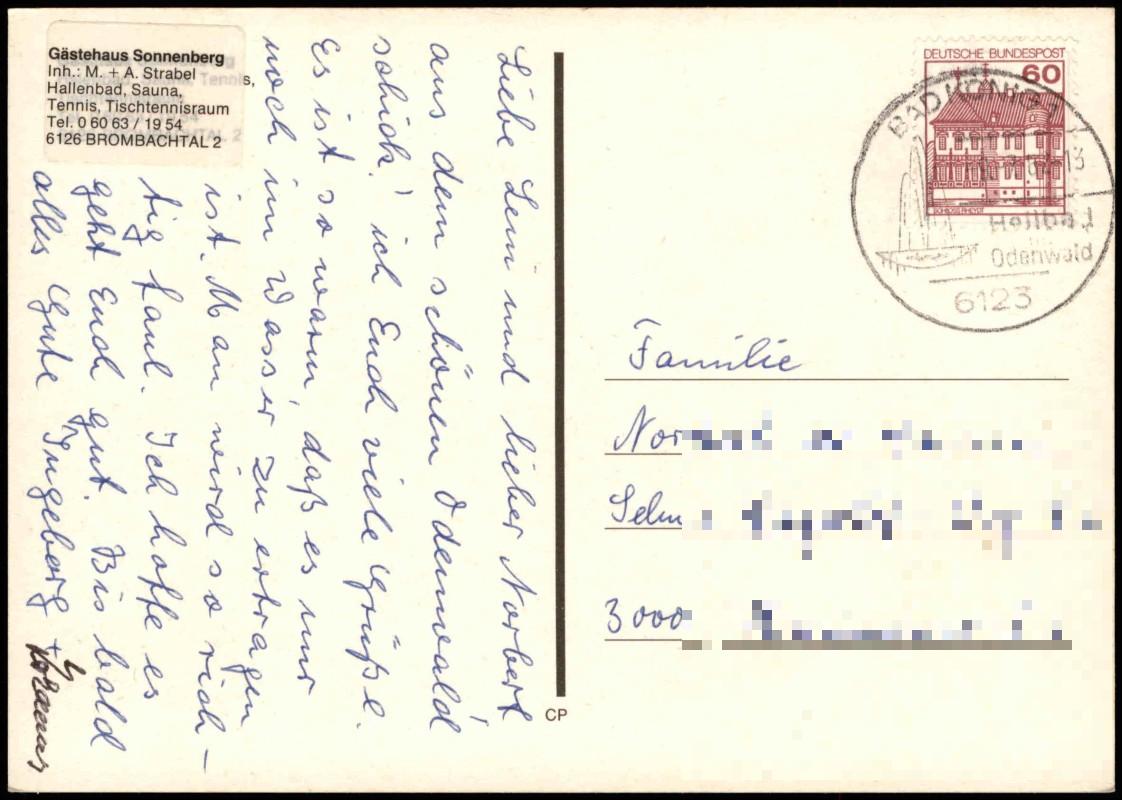 Gästehaus Sonnenberg
Inh.: M. + A. Strabel
Hallenbad, Sauna,
Tennis, Tischtennisraum
Tel. 0 60 63 / 19 54
6126 BROMBACHTAL 2
Liebe Leni und lieber Norbert
aus dem schönen Odenwald
schick' ich Euch viele Grüße.
Es ist so warm, daß es nur
noch im Wasser zu ertragen
ist. Man wird so rich-
tig faul. Ich hoffe es
geht Euch gut. Bis bald
alles Gute Ingeborg +
CP
DEUTSCHE BUNDESPOST
60
SCHLOSS RHEYDT
BAD KÖNIG
13
Heilbad
Odenwald
6123
Familie
Nor
Selm
3000